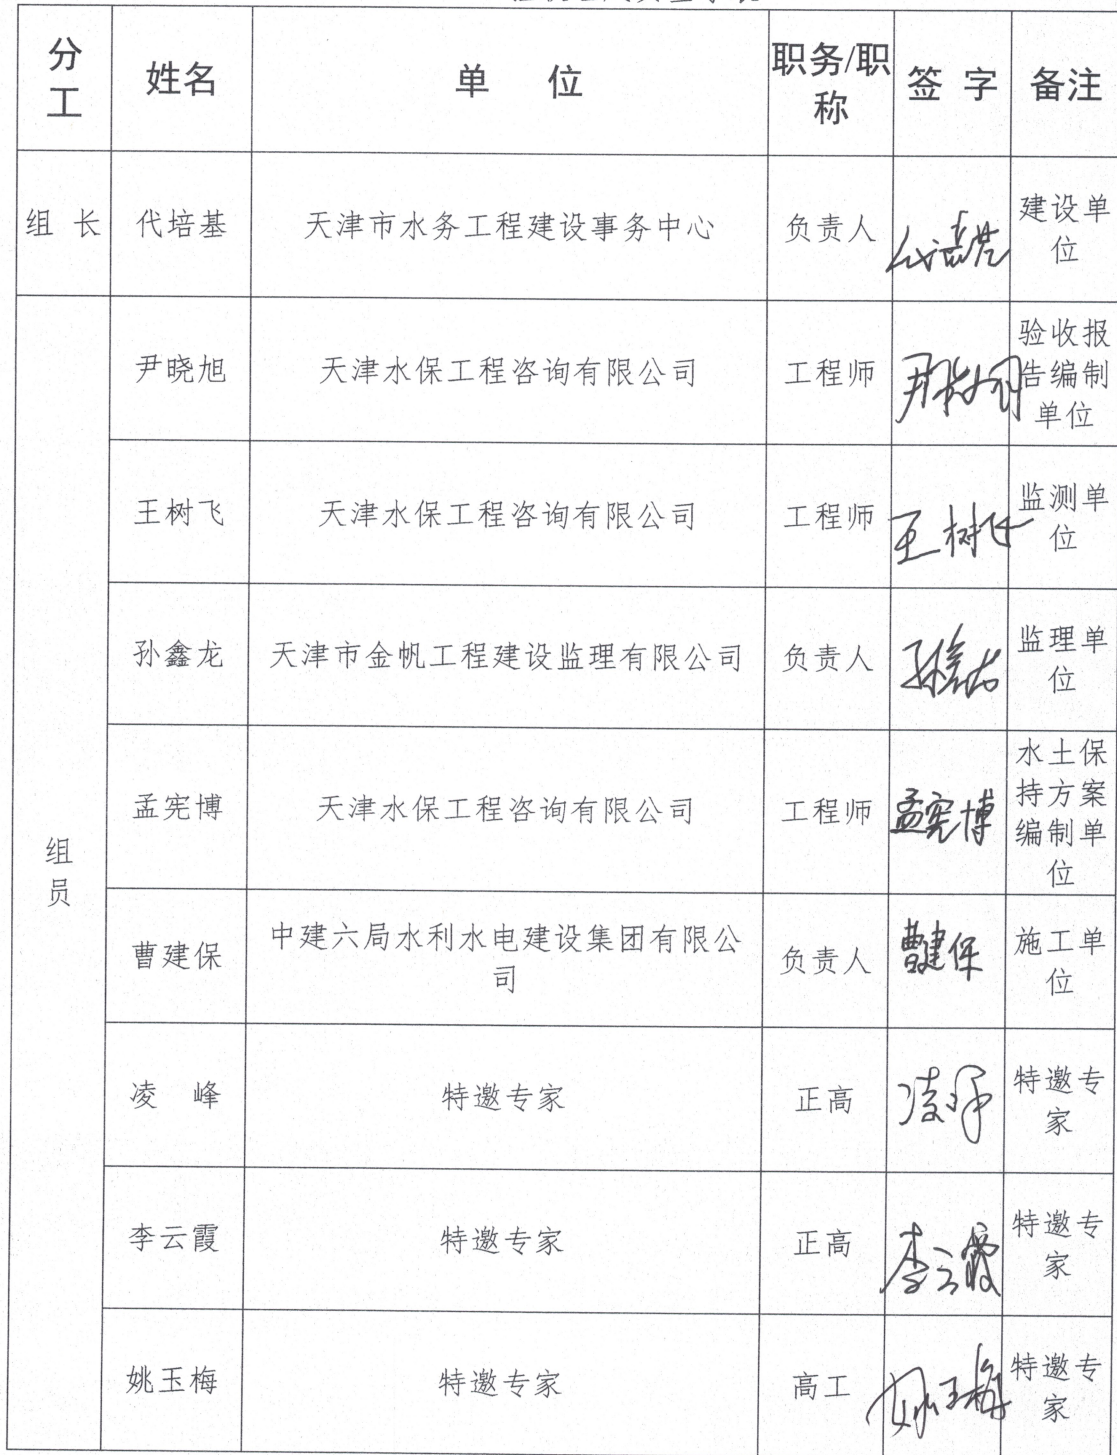 分工 姓名 单 位 职务/职称 签 字 备注
组 长 代培基 天津市水务工程建设事务中心 负责人 代培基 建设单位
组员
尹晓旭 天津水保工程咨询有限公司 工程师 尹晓旭 验收报告编制单位
王树飞 天津水保工程咨询有限公司 工程师 王树飞 监测单位
孙鑫龙 天津市金帆工程建设监理有限公司 负责人 孙鑫龙 监理单位
孟宪博 天津水保工程咨询有限公司 工程师 孟宪博 水土保持方案编制单位
曹建保 中建六局水利水电建设集团有限公司 负责人 曹建保 施工单位
凌 峰 特邀专家 正高 凌峰 特邀专家
李云霞 特邀专家 正高 李云霞 特邀专家
姚玉梅 特邀专家 高工 姚玉梅 特邀专家